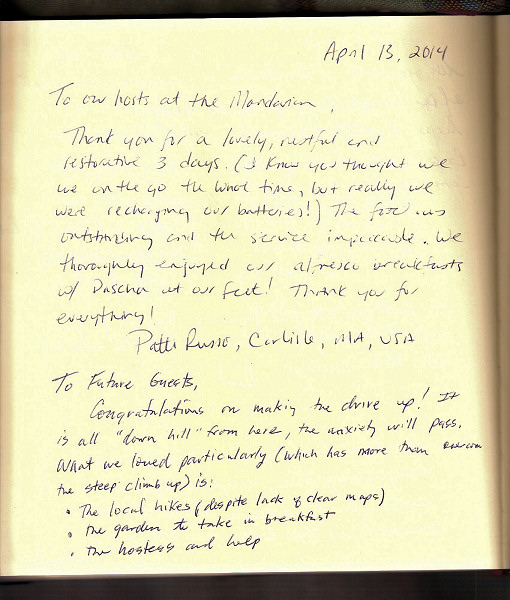 April 13, 2014
To our hosts at the Mandarin,
Thank you for a lovely, restful and
restorative 3 days. (I know you thought we
we on the go the whole time, but really we
were recharging our batteries!) The food was
outstanding and the service impeccable. We
thoroughly enjoyed our alfresco breakfasts
w/ Dascha at our feet! Thank you for
everything!
Patti Russo, Carlisle, MA, USA
To Future Guests,
Congratulations on making the drive up! It
is all "down hill" from here, the anxiety will pass.
What we loved particularly (which has more than overcome
the steep climb up) is:
• The local hikes (despite lack of clear maps)
• the garden to take in breakfast
• the hostess and help